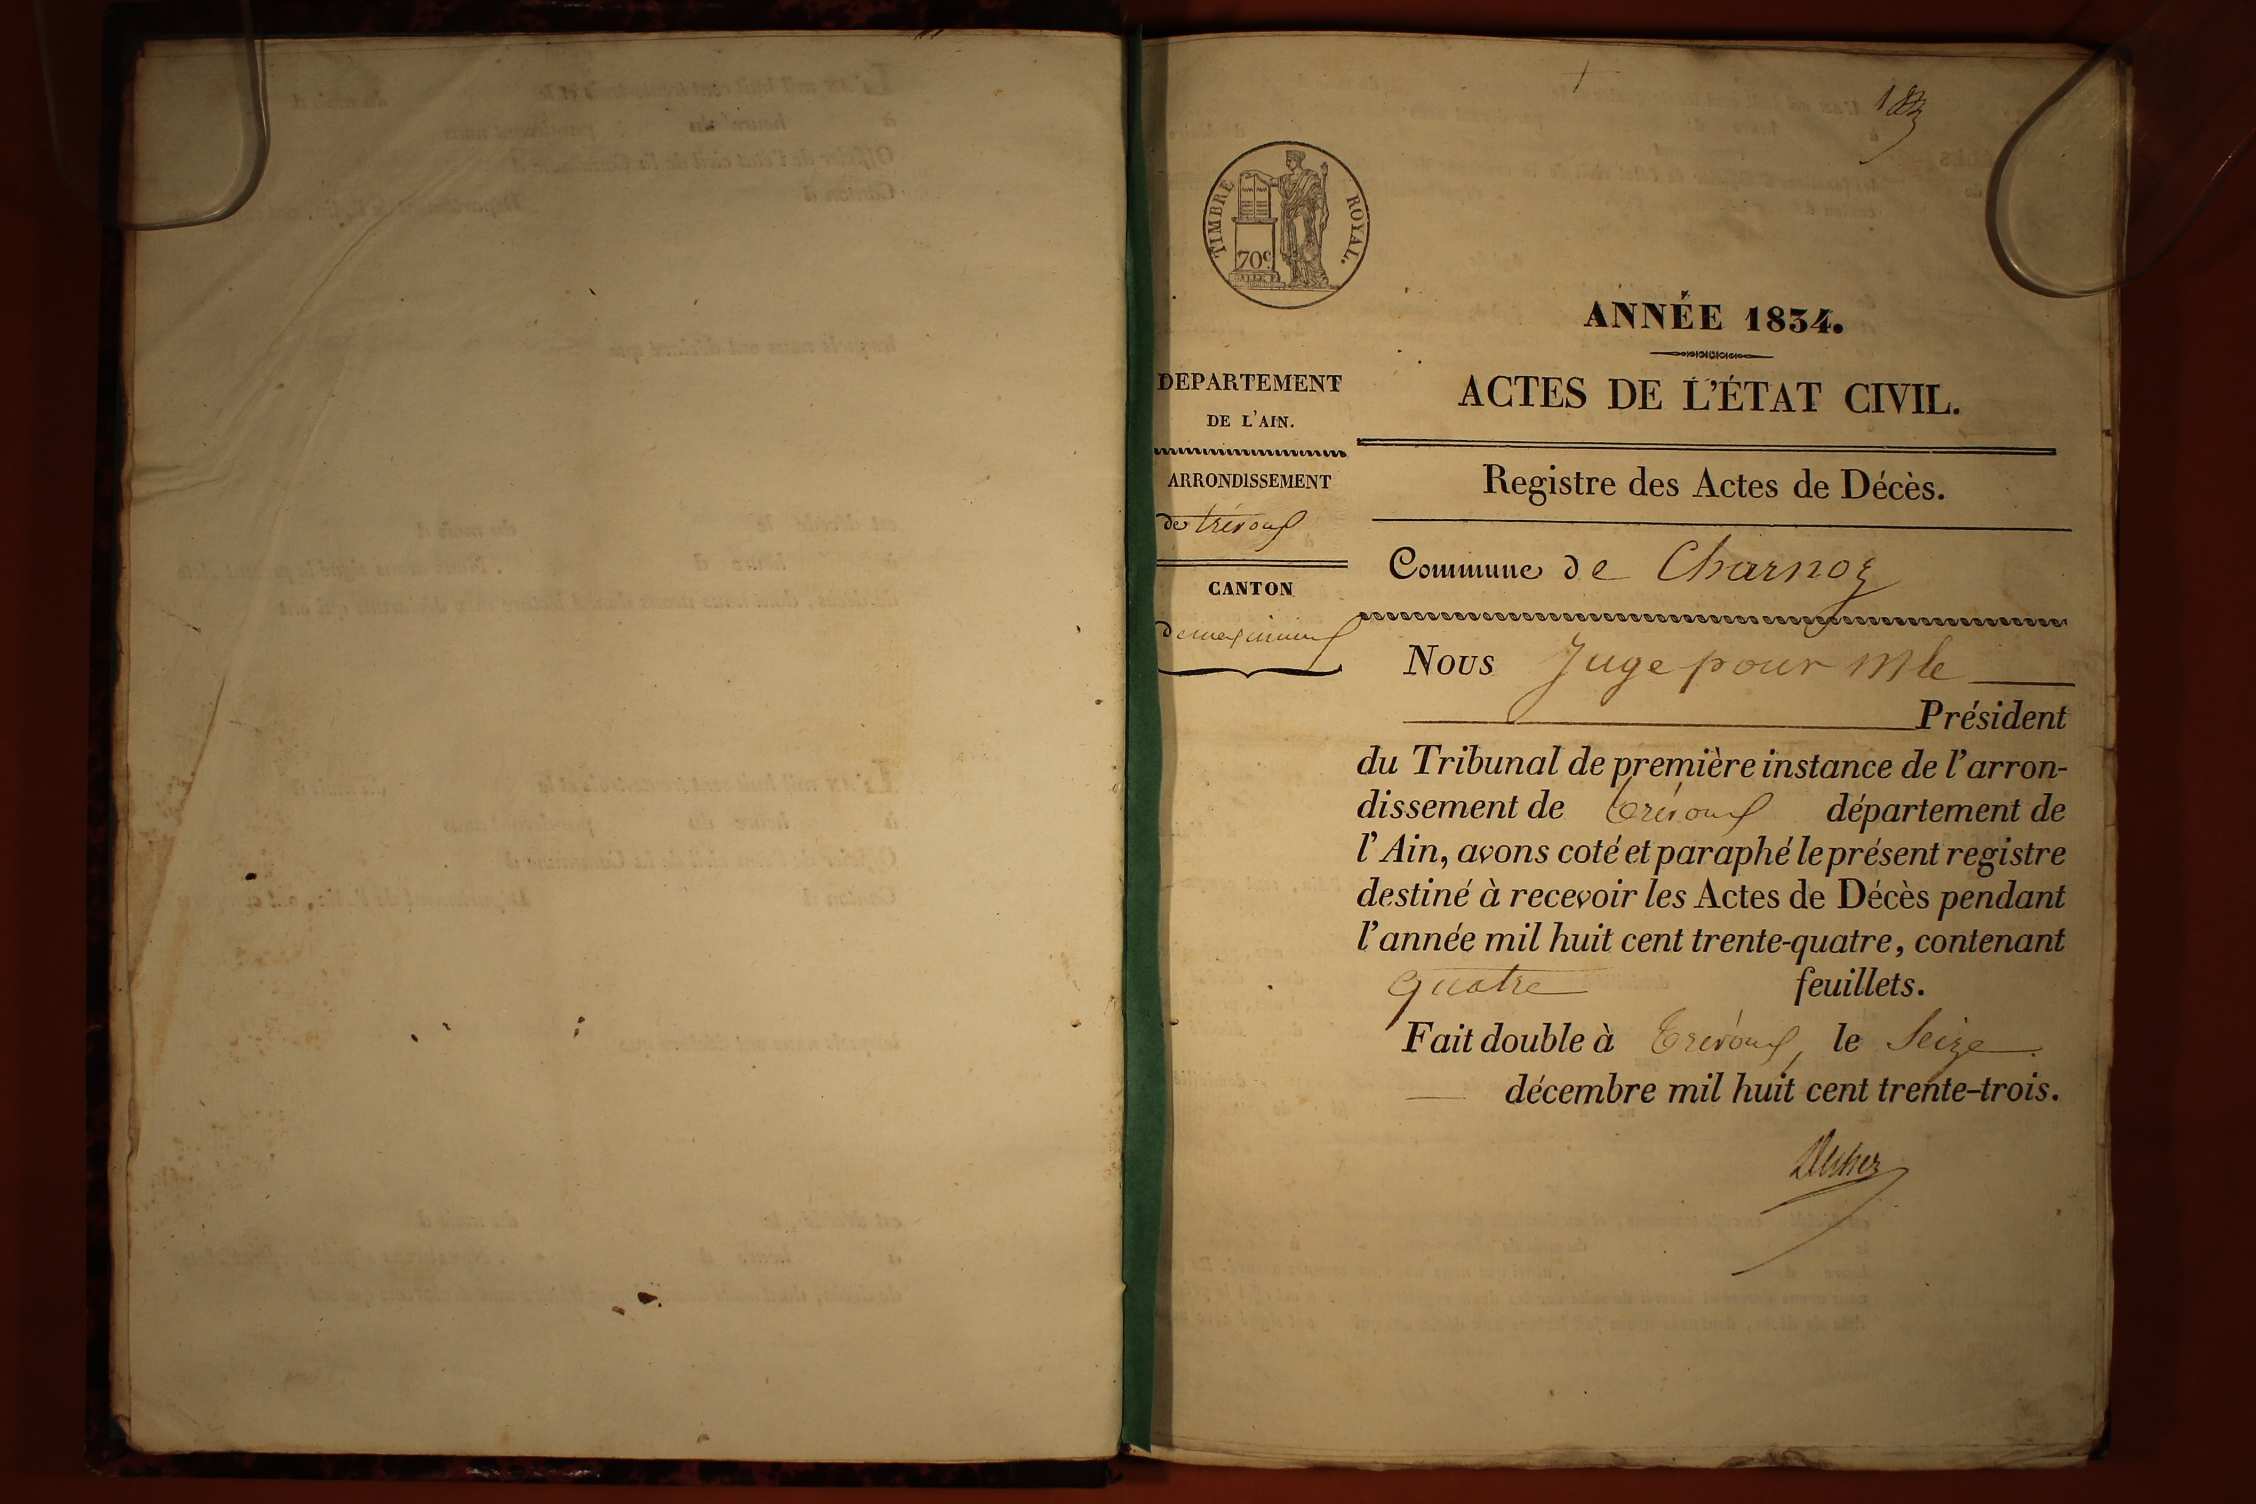 TIMBRE ROYAL.
70c
ANNÉE 1834.
ACTES DE L'ÉTAT CIVIL.
Registre des Actes de Décès.
Commune de Charnoz
DEPARTEMENT
DE L'AIN.
ARRONDISSEMENT
de trévoux
CANTON
de meximieux
Nous Juge pour Mle
Président
du Tribunal de première instance de l'arron-
dissement de trévoux département de
l'Ain, avons coté et paraphé le présent registre
destiné à recevoir les Actes de Décès pendant
l'année mil huit cent trente-quatre, contenant
quatre feuillets.
Fait double à Trévoux, le Seize
décembre mil huit cent trente-trois.